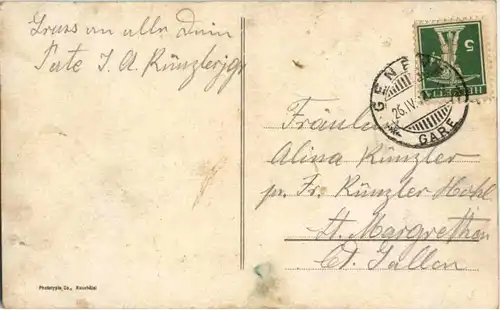 Gruss an alle Dein
Pate J. A. Künzler jgr
5
HELVETIA
GENF
26. IV.
GARE
Fräulein
Alina Künzler
pr. Fr. Künzler Hohl
St. Margrethen
Ct. Gallen
Phototypie Co., Neuchâtel